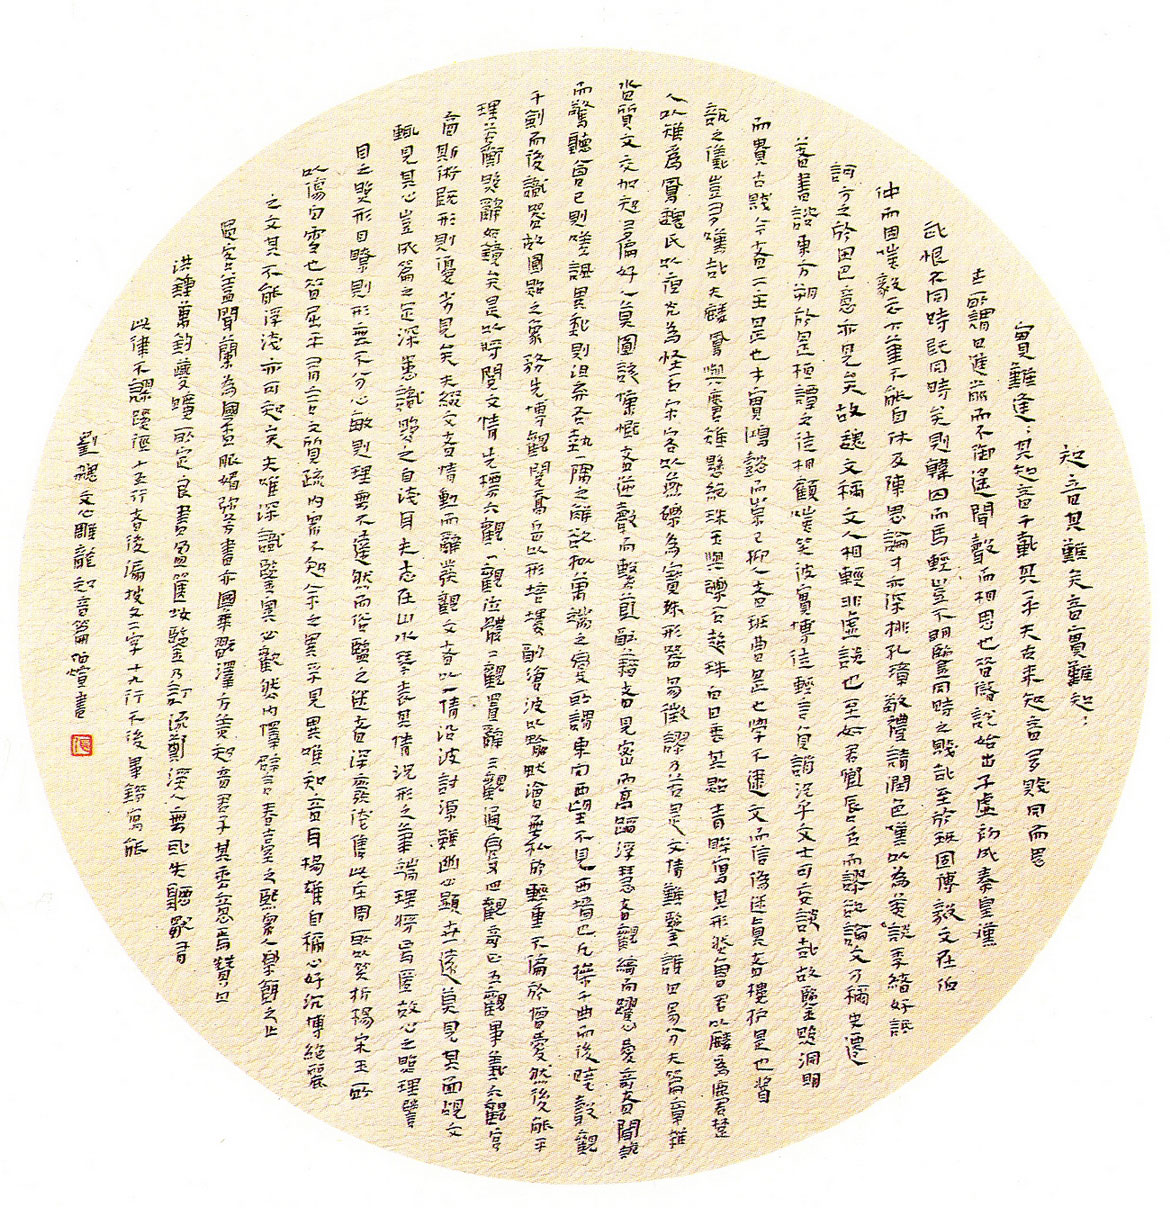 知音其難矣音實難知：
實難逢：其知音千載其一乎夫古來知音多賤同而思
古所謂日進前而不御遙聞聲而相思也昔儲說始出子虛初成秦皇漢
武恨不同時既同時矣則韓囚而馬輕豈不明鑒同時之賤哉至於班固傅毅文在伯
仲而固嗤毅云下筆不能自休及陳思論才亦深排孔璋敬禮請潤色嘆以為美談季緒好詆
訶方之於田巴意亦見矣故魏文稱文人相輕非虛談也至如君卿唇舌而謬欲論文乃稱史遷
著書諮東方朔於是桓譚之徒相顧嗤笑彼實博徒輕言負誚況乎文士可妄談哉故鑒照洞明
而貴古賤今者二主是也才實鴻懿而崇己抑人者班曹是也學不逮文而信偽迷真者樓護是也醬
瓿之議豈多嘆哉夫麟鳳與麏雉懸絕珠玉與礫石超殊白日垂其照青眸寫其形然魯臣以麟為麏楚
人以雉為鳳魏氏以夜光為怪石宋客以燕礫為寶珠形器易徵謬乃若是文情難鑒誰曰易分夫篇章雜
沓質文交加知多偏好人莫圓該慷慨者逆聲而擊節醞藉者見密而高蹈浮慧者觀綺而躍心愛奇者聞詭
而驚聽會己則嗟諷異我則沮棄各執一隅之解欲擬萬端之變所謂東向而望不見西牆也凡操千曲而後曉聲觀
千劍而後識器故圓照之象務先博觀閱喬岳以形培塿酌滄波以喻畎澮無私於輕重不偏於憎愛然後能平
理若衡照辭如鏡矣是以將閱文情先標六觀一觀位體二觀置辭三觀通變四觀奇正五觀事義六觀宮
商斯術既形則優劣見矣夫綴文者情動而辭發觀文者以情沿波討源雖幽必顯世遠莫見其面覘文
輒見其心豈成篇之足深患識照之自淺耳夫志在山水琴表其情況形之筆端理將焉匿故心之照理譬
目之照形目瞭則形無不分心敏則理無不達然而俗鑒之迷者深廢淺售此莊周所以笑折楊宋玉所
以傷白雪也昔屈平有言文質疏內眾不知余之異采見異唯知音耳揚雄自稱心好沉博絕麗
之文其不能浮淺亦可知矣夫唯深識鑒奧必歡然內懌辟言春臺之熙眾人樂餌之止
過客蓋聞蘭為國香服媚彌芬書亦國華翫澤方美知音君子其垂意焉贊曰
洪鍾萬鈞夔曠所定良書盈篋妙鑒乃訂流鄭淫人無或失聽獨有
此律不謬蹊徑十五行者後漏披文二字十九行不後事錯寫能
劉勰文心雕龍知音篇伯愼書